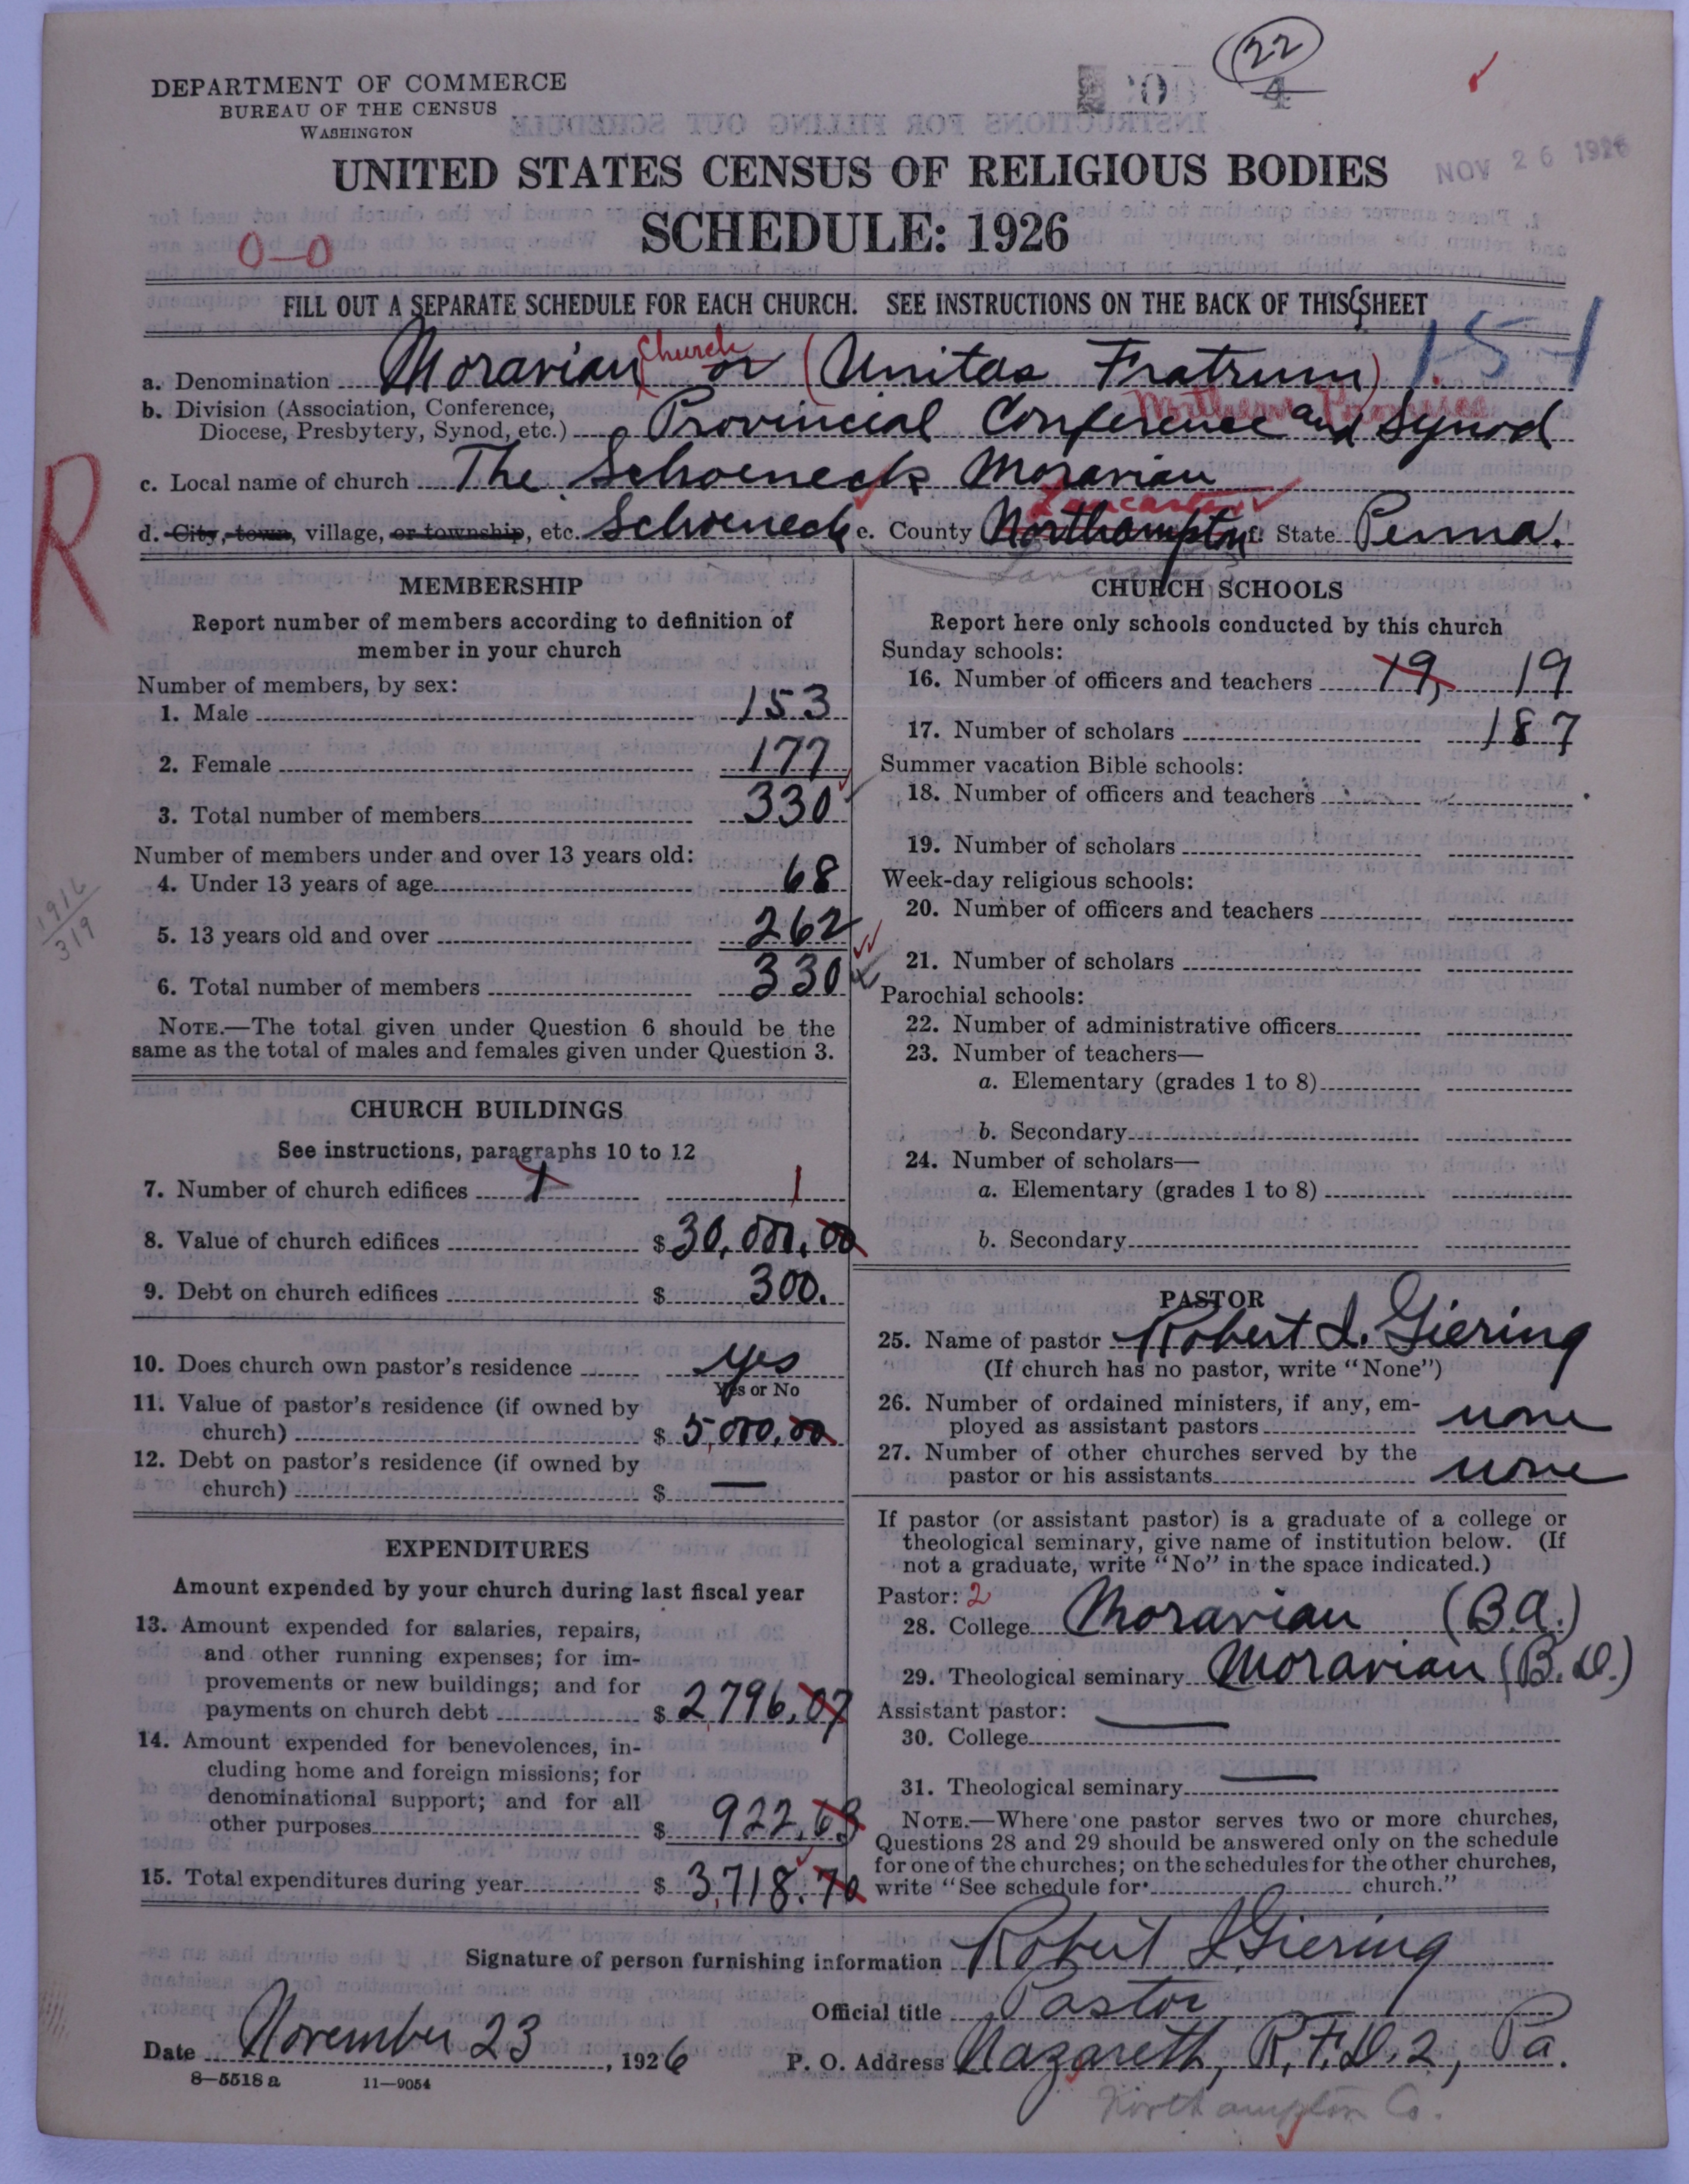 22
4
DEPARTMENT OF COMMERCE
BUREAU OF THE CENSUS
WASHINGTON
NOV 26 1926
UNITED STATES CENSUS OF RELIGIOUS BODIES
SCHEDULE: 1926
0-0
FILL OUT A SEPARATE SCHEDULE FOR EACH CHURCH. SEE INSTRUCTIONS ON THE BACK OF THIS SHEET
151
a. Denomination Moravian Church or (Unitas Fratrum)
b. Division (Association, Conference, Diocese, Presbytery, Synod, etc.) Provincial Conference and Synod
Northern Province
c. Local name of church The Schoeneck Moravian
d. City, town, village, or township, etc. Schoeneck e. County Northampton f. State Penna.
Lancaster
Lancaster
R
MEMBERSHIP
Report number of members according to definition of
member in your church
Number of members, by sex:
1. Male 153
2. Female 177
3. Total number of members 330
Number of members under and over 13 years old:
4. Under 13 years of age 68
5. 13 years old and over 262
6. Total number of members 330
1916
319
NOTE.—The total given under Question 6 should be the
same as the total of males and females given under Question 3.
CHURCH BUILDINGS
See instructions, paragraphs 10 to 12
7. Number of church edifices 1 1
8. Value of church edifices $ 30,000.00
9. Debt on church edifices $ 300.
10. Does church own pastor's residence yes
Yes or No
11. Value of pastor's residence (if owned by
church) $ 5,000.00
12. Debt on pastor's residence (if owned by
church) $ —
EXPENDITURES
Amount expended by your church during last fiscal year
13. Amount expended for salaries, repairs,
and other running expenses; for im-
provements or new buildings; and for
payments on church debt $ 2796.07
14. Amount expended for benevolences, in-
cluding home and foreign missions; for
denominational support; and for all
other purposes $ 922.63
15. Total expenditures during year $ 3,718.70
CHURCH SCHOOLS
Report here only schools conducted by this church
Sunday schools:
16. Number of officers and teachers 19, 19
17. Number of scholars 187
Summer vacation Bible schools:
18. Number of officers and teachers
19. Number of scholars
Week-day religious schools:
20. Number of officers and teachers
21. Number of scholars
Parochial schools:
22. Number of administrative officers
23. Number of teachers—
a. Elementary (grades 1 to 8)
b. Secondary
24. Number of scholars—
a. Elementary (grades 1 to 8)
b. Secondary
PASTOR
25. Name of pastor Robert I. Giering
(If church has no pastor, write "None")
26. Number of ordained ministers, if any, em-
ployed as assistant pastors none
27. Number of other churches served by the
pastor or his assistants none
If pastor (or assistant pastor) is a graduate of a college or
theological seminary, give name of institution below. (If
not a graduate, write "No" in the space indicated.)
Pastor: 2
28. College Moravian (B.A.)
29. Theological seminary Moravian (B.D.)
Assistant pastor: —
30. College
31. Theological seminary —
NOTE.—Where one pastor serves two or more churches,
Questions 28 and 29 should be answered only on the schedule
for one of the churches; on the schedules for the other churches,
write "See schedule for church."
Signature of person furnishing information Robert I Giering
Official title Pastor
Date November 23, 1926 P. O. Address Nazareth, R.F.D. 2, Pa.
8—5518 a 11—9054
Northampton Co.